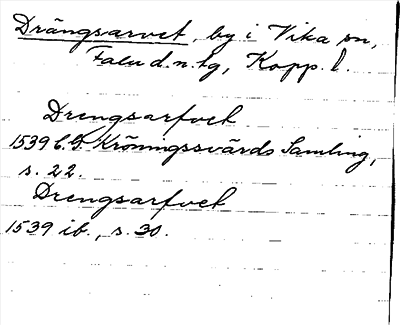 Drängsarvet, by i Vika sn,
Falu d.n. tg, Kopp. l.
Drengsarfvet
1539 C. G. Kröningssvärds Samling,
s. 22.
Drengsarfvet
1539 ib., s. 30.